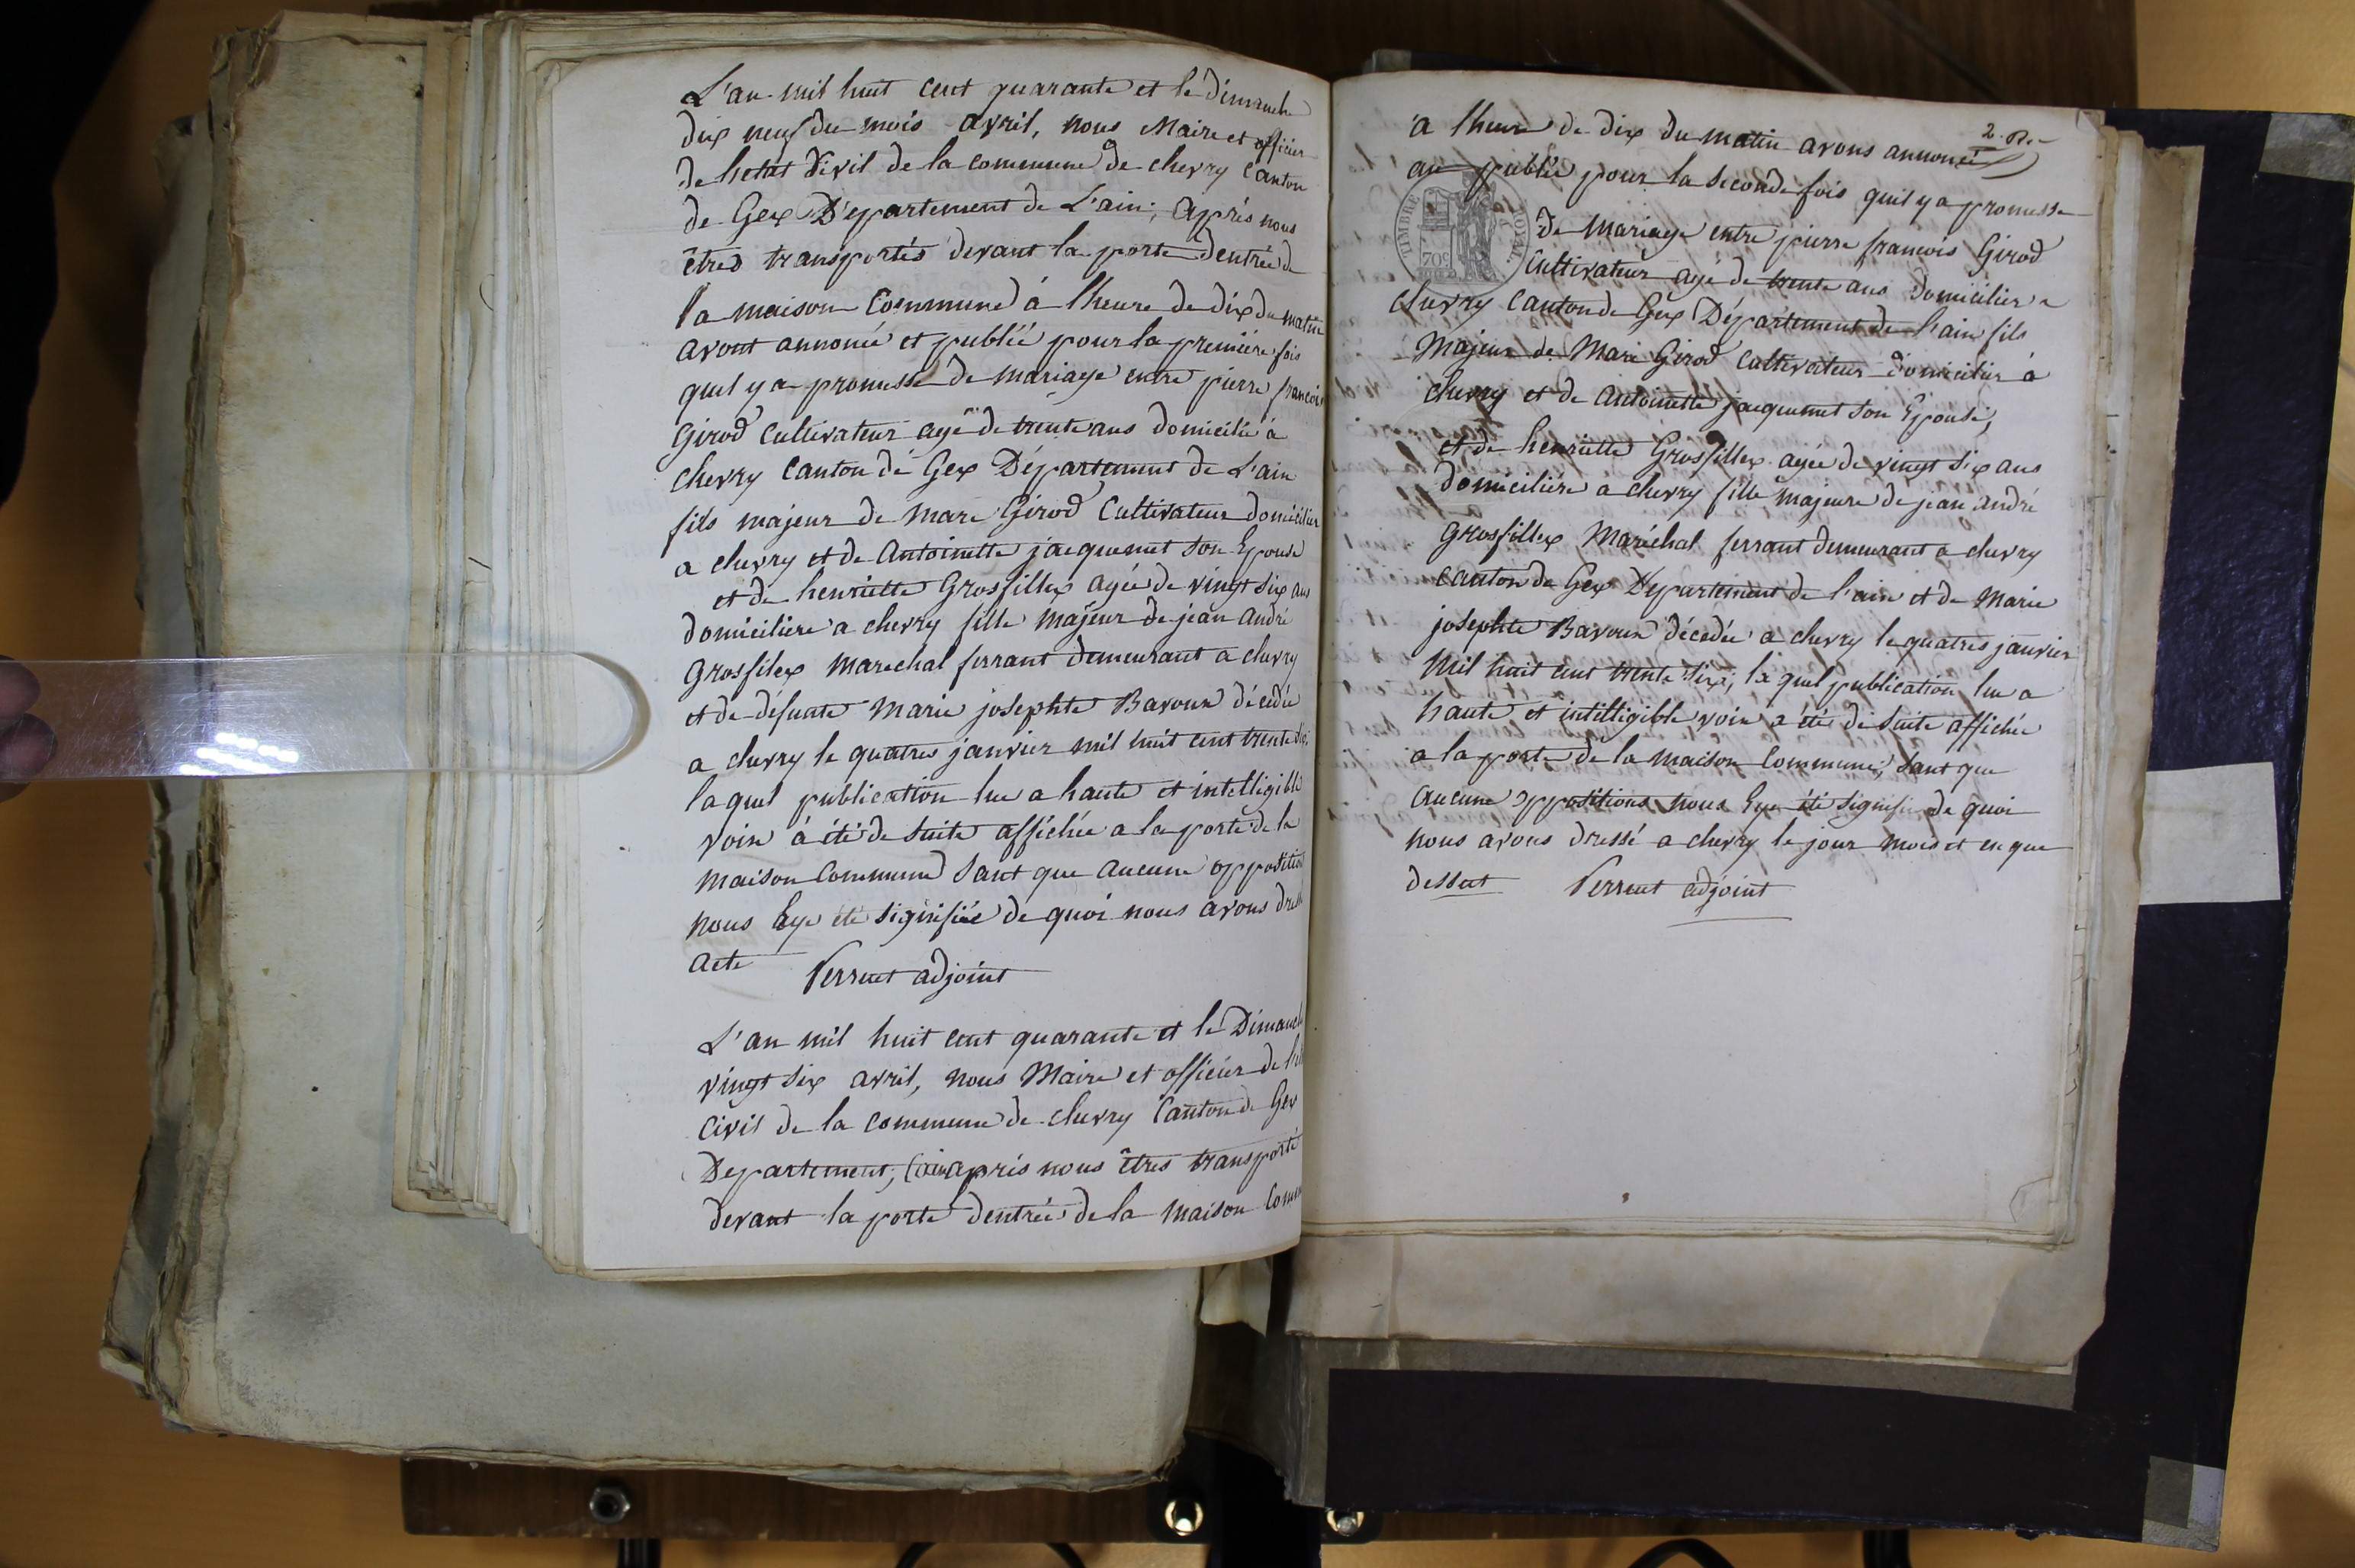 L'an mil huit cent quarante et le dimanche
dix neuf du mois avril, nous Maire et officier
de letat Civil de la commune de chevry Canton
de Gex Département de L'ain; après nous
êtres transportés devant la porte dentrée de
la maison Commune à lheure de dix du matin
avont annoncé et publié pour la première fois
quil y a promesse de mariage entre pierre francois
Girod cultivateur agé de trente ans domicilié à
chevry Canton de Gex Département de L'ain
fils majeur de marc Girod Cultivateur domicilier
a chevry et de Antoinette jacquemet son Epouse
et de henriette Grosfillex agée de vingt six ans
domicilière a chevry fille majeur de jean andré
Grosfilex marechal ferrant demeurant a chevry
et de défunte marie josephte Bavoux décédée
a chevry le quatres janvier mil huit cent trente six
laquel publication lue a haute et intelligible
voix à été de suite affichée a la porte de la
maison Commune Sant que aucune opposition
nous Eye été signifiée de quoi nous avons dressé
acte Perruet adjoint
L'an mil huit cent quarante et le Dimanche
vingt six avril, nous Maire et officier de l'etat
Civil de la commune de chevry Canton de Gex
Departement, lain après nous êtres transporté
devant la porte dentrée de la maison Commune
2.
a lheure de dix du matin avons annoncé
au publié pour la seconde fois quil y a promesse
TIMBRE ROYAL.
70c
de mariage entre pierre francois Girod
Cultivateur agé de trente ans domicilier a
chevry Canton de Gex Département de lain fils
majeur de Marc Girod Cultivateur domicilier à
chevry et de Antoinette jacquemet son Epouse,
et de henriette Grosfillex agée de vingt six ans
domicilière a chevry fille majeure de jean andré
Grosfillex Maréchal ferrant demeurant a chevry
Canton de Gex Departement de l'ain et de Marie
josephte Bavoux décédée à chevry le quatres janvier
mil huit cent trente six; laquel publication lue a
haute et intelligible voix a été de suite affichée
a la porte de la maison Commune, Sant que
aucune oppositions nous Eye été signifié de quoi
nous avons dressé a chevry le jour mois et en que
dessut Perruet adjoint